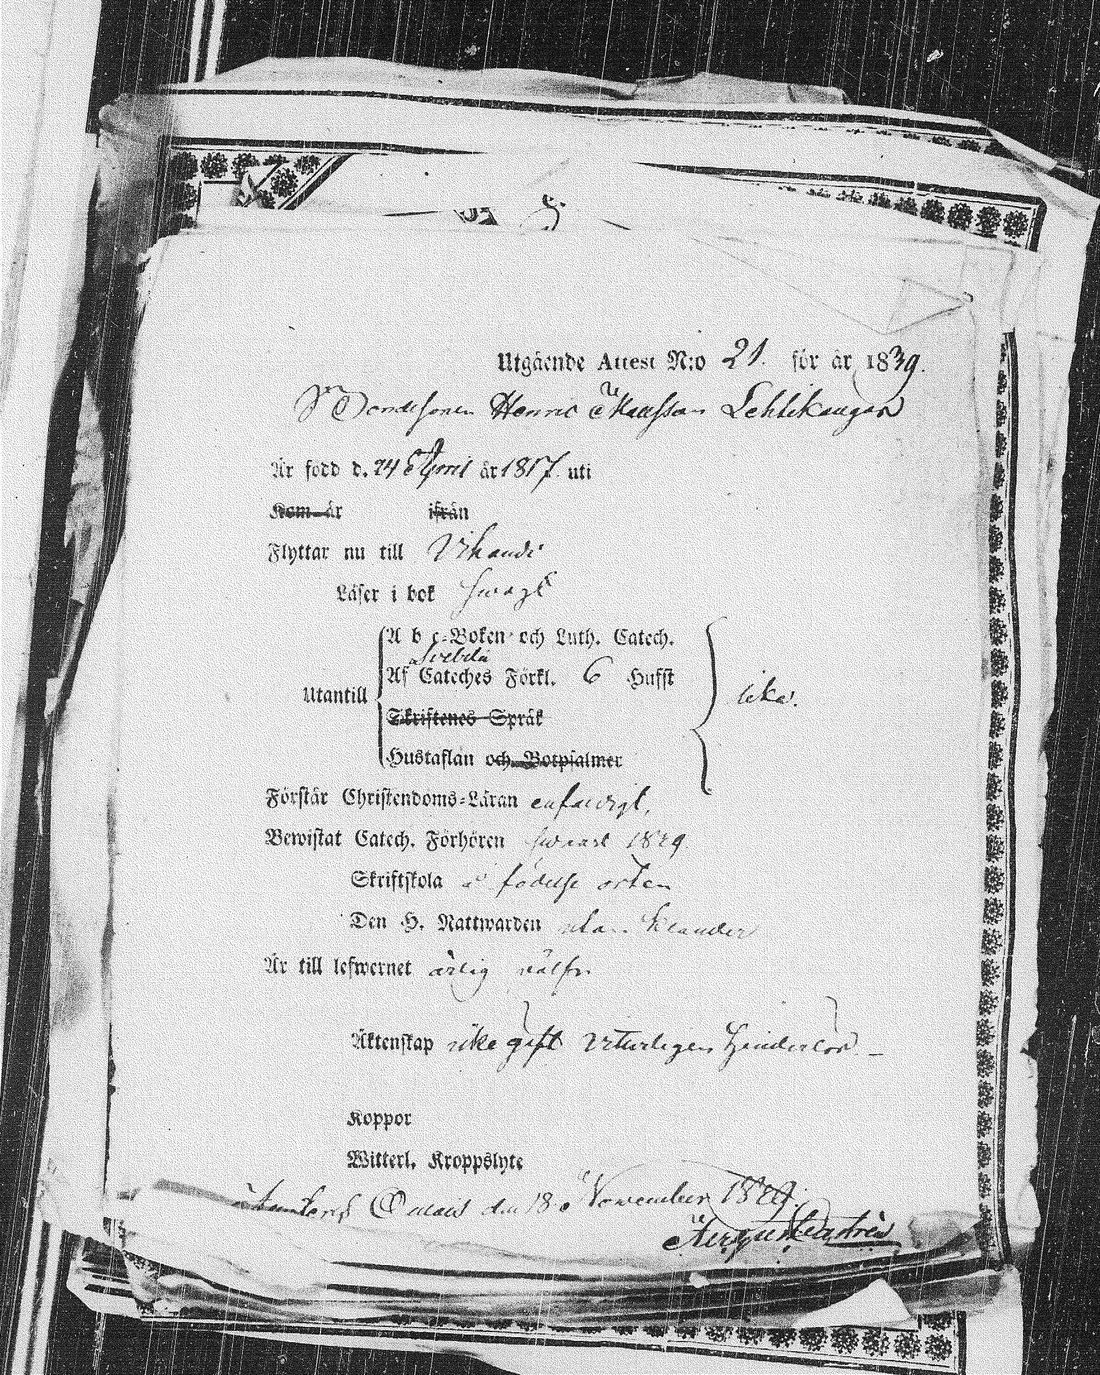 Utgående Attest N:o 21. för år 1839.
Bondesonen Henric Lehtikangas
Är född d. 24 April år 1817. uti
Kom år ifrån
Flyttar nu till Vihandi
Läser i bok swagt
A b c-Boken och Luth. Catech.
Svebelii
Utantill Af Cateches Förkl. 6 Hufst lika.
Skriftenes Språk
Hustaflan och Botpsalmer
Förstår Christendoms-Läran enfaldigt,
Bewistat Catech. Förhören 1839
Skriftskola å födelse orten
Den H. Nattwarden utan klander
Är till lefwernet ärlig
Äktenskap icke gift Veterligen hinderlös. –
Koppor
Witterl. Kroppslyte
den 18 November 1839.